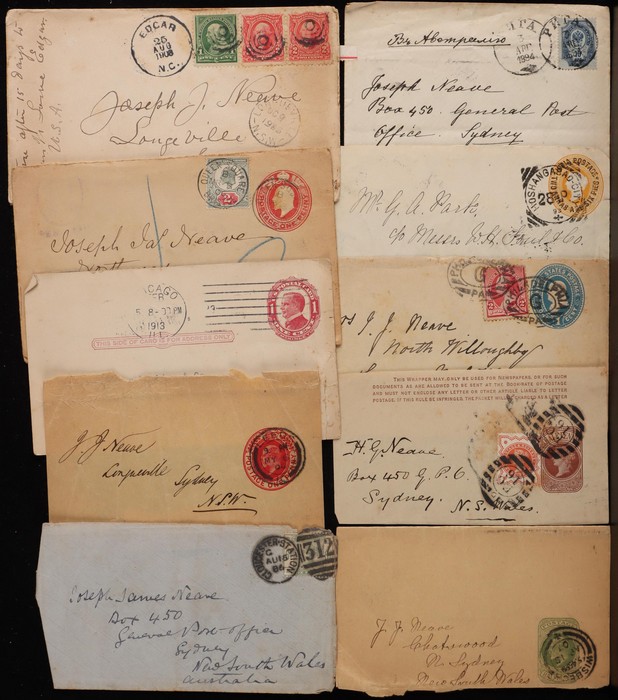 EDGAR
25
AUG
1908
N.C.
after 15 days to
Edgar
U.S.A.
Joseph J. Neave
Longeville
Sydney
Въ Австралію
РИГА
1894
РИГА
Joseph Neave
Box 450. General Post
Office. Sydney
POSTAGE ONE PENNY
Joseph Jas Neave
HOSHANGABAD
28
Mr. G. A. Parks,
c/o Messrs W. H. Paul & Co.
CHICAGO
5 8-30 PM
1913
ILL.
THIS SIDE OF CARD IS FOR ADDRESS ONLY
1
PHILADELPHIA
PA
STATES POSTAGE
J. J. Neave
North Willoughby
THIS WRAPPER MAY ONLY BE USED FOR NEWSPAPERS, OR FOR SUCH
DOCUMENTS AS ARE ALLOWED TO BE SENT AT THE BOOK-RATE OF POSTAGE
AND MUST NOT ENCLOSE ANY LETTER OR OTHER ARTICLE LIABLE TO LETTER
POSTAGE. IF THIS RULE BE INFRINGED, THE PACKET WILL BE CHARGED AS A LETTER.
J. J. Neave
Longueville Sydney
N.S.W.
H. G. Neave
Box 450 G. P. O.
Sydney.
N. S. Wales.
GLOUCESTER-STATION
G
AU 18
86
312
Joseph James Neave
Box 450
General Post-office
Sydney
New South Wales
Australia
J. J. Neave
Chatswood
Nr Sydney
New South Wales
WISBECH